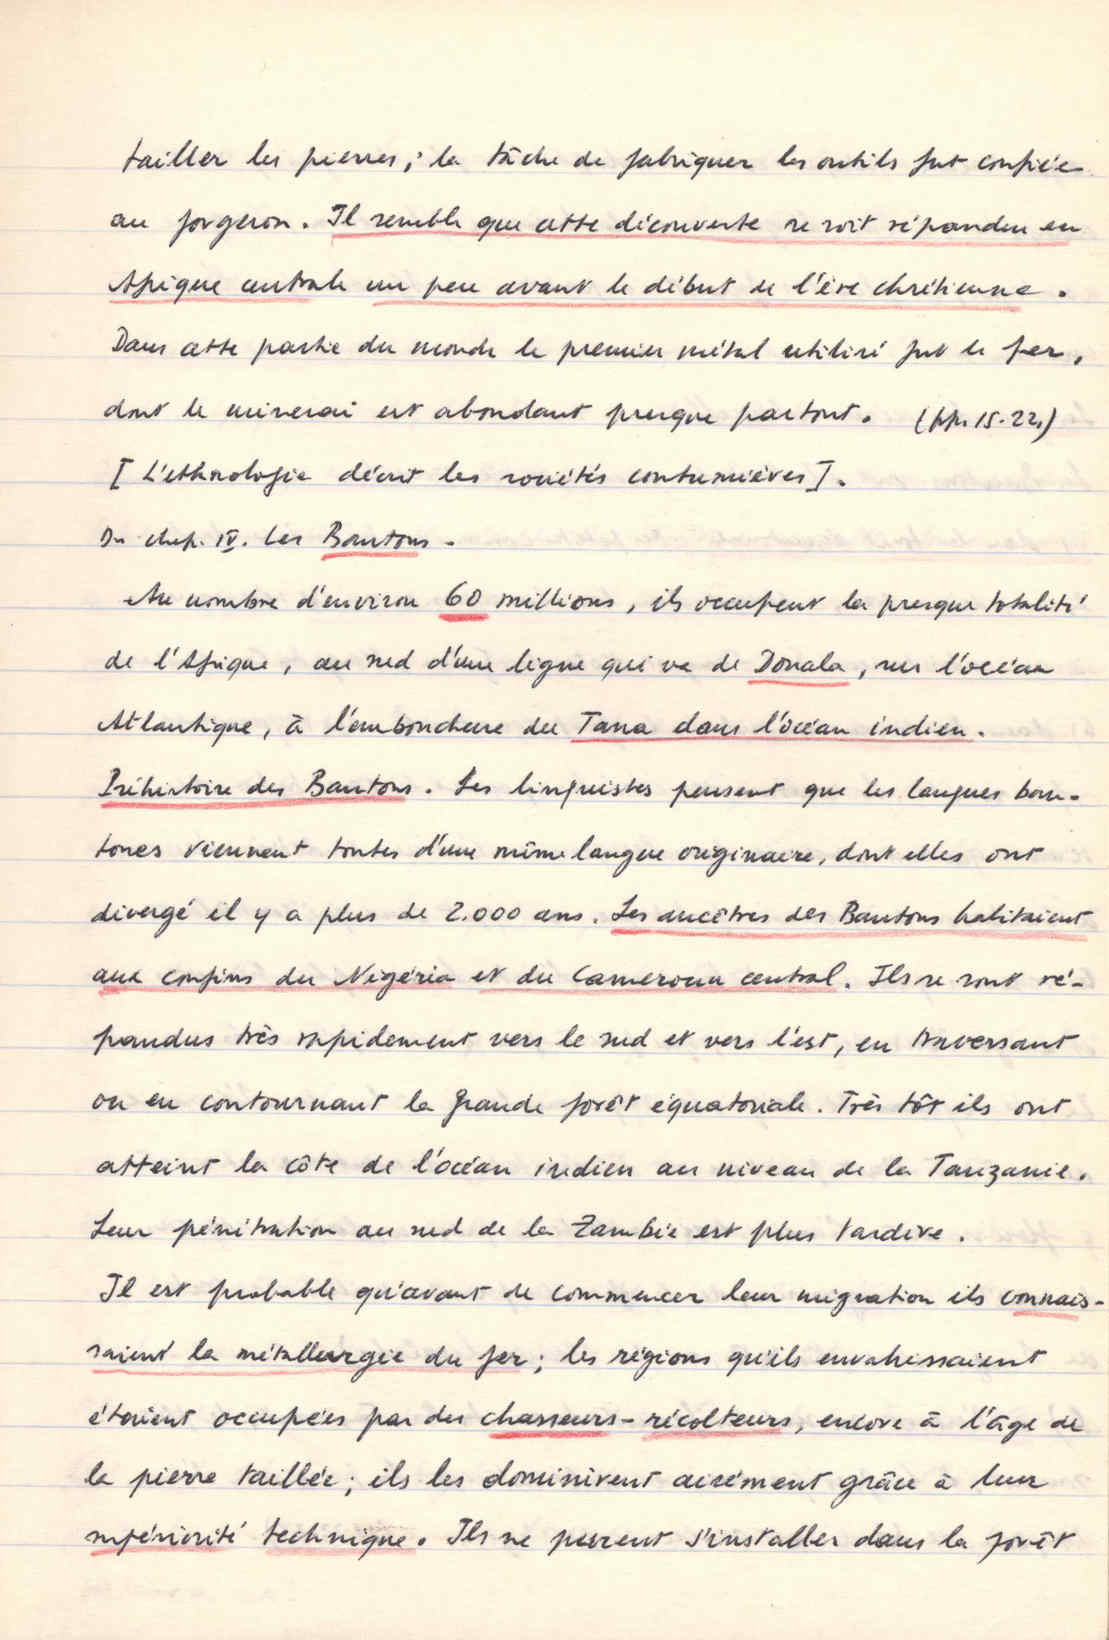 tailler les pierres ; la tâche de fabriquer les outils fut confiée
au forgeron. Il semble que cette découverte se soit répandue en
Afrique centrale un peu avant le début de l'ère chrétienne.
Dans cette partie du monde le premier métal utilisé fut le fer,
dont le minerai est abondant presque partout. (pp. 15-22.)
[L'ethnologie décrit les sociétés coutumières].
Du chap. IV. Les Bantous.
Au nombre d'environ 60 millions, ils occupent la presque totalité
de l'Afrique, au sud d'une ligne qui va de Douala, sur l'océan
Atlantique, à l'embouchure du Tana dans l'océan indien.
Préhistoire des Bantous. Les linguistes pensent que les langues ban-
toues viennent toutes d'une même langue originaire, dont elles ont
divergé il y a plus de 2.000 ans. Les ancêtres des Bantous habitaient
aux confins du Nigéria et du Cameroun central. Ils se sont ré-
pandus très rapidement vers le sud et vers l'est, en traversant
ou en contournant la grande forêt équatoriale. Très tôt ils ont
atteint la côte de l'océan indien au niveau de la Tanzanie.
Leur pénétration au sud de la Zambie est plus tardive.
Il est probable qu'avant de commencer leur migration ils connais-
saient la métallurgie du fer ; les régions qu'ils envahissaient
étaient occupées par des chasseurs-récolteurs, encore à l'âge de
la pierre taillée ; ils les dominèrent aisément grâce à leur
supériorité technique. Ils ne purent s'installer dans la forêt